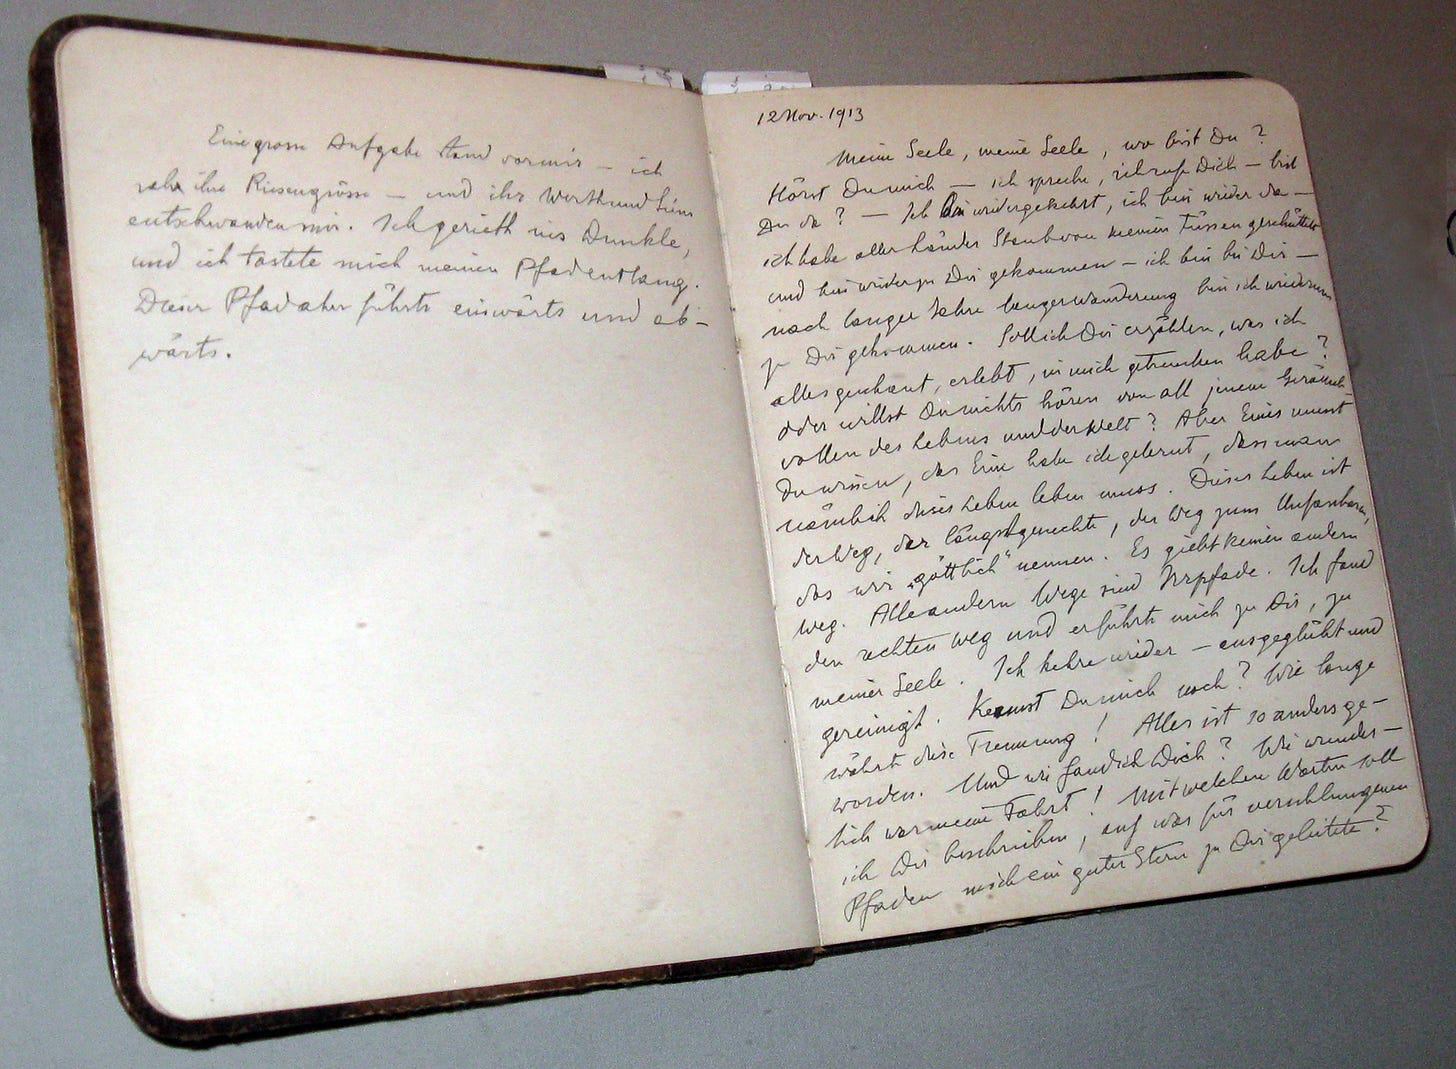 Eine grosse Aufgabe stand vor mir — ich
sah ihre Riesengrösse — und ihr Werth und Sinn
entschwanden mir. Ich gerieth ins Dunkle,
und ich tastete mich meinen Pfad entlang.
Dieser Pfad aber führte einwärts und ab-
wärts.
12 Nov. 1913
Meine Seele, meine Seele, wo bist Du?
Hörst Du mich — ich spreche, ich rufe Dich — bist
Du da? — Ich bin wiedergekehrt, ich bin wieder da —
ich habe aller Länder Staub von meinen Füssen geschüttelt
und bin wieder zu Dir gekommen — ich bin bei Dir —
nach langer Jahre langer Wanderung bin ich wiederum
zu Dir gekommen. Soll ich Dir erzählen, was ich
alles geschaut, erlebt, in mich getrunken habe?
oder willst Du nichts hören von all jenem Geräusch-
vollen des Lebens und der Welt? Aber Eines musst
Du wissen, das Eine habe ich gelernt, dass man
nämlich dieses Leben leben muss. Dieses Leben ist
der Weg, der längst gesuchte, der Weg zum Unfassbaren,
das wir „göttlich“ nennen. Es giebt keinen andern
Weg. Alle andern Wege sind Irrpfade. Ich fand
den rechten Weg und er führte mich zu Dir, zu
meiner Seele. Ich kehre wieder — ausgeglüht und
gereinigt. Kennst Du mich noch? Wie lange
währte diese Trennung! Alles ist so anders ge-
worden. Und wie fand ich Dich? Wie wunder-
lich war meine Fahrt! Mit welchen Worten soll
ich Dir beschreiben, auf was für verschlungenen
Pfaden mich ein guter Stern zu Dir geleitete?